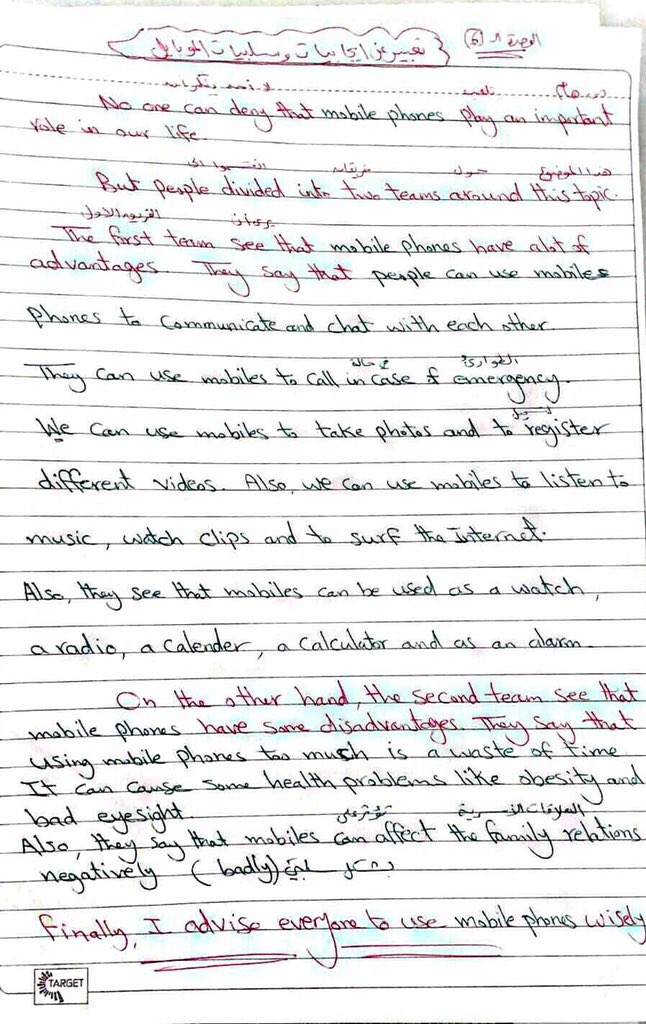 الوحدة الـ 6
تعبير عن ايجابيات وسلبيات الموبايل
لا أحد ينكر انه تلعب دور هام
No one can deny that mobile phones play an important
role in our life.
انقسموا الى فريقان حول هذا الموضوع
But people divided into two teams around this topic.
الفريق الأول يرى ان
The first team see that mobile phones have alot of
advantages. They say that people can use mobiles
phones to communicate and chat with each other.
في حالة الطوارئ
They can use mobiles to call in case of emergency.
تسجيل
We can use mobiles to take photos and to register
different videos. Also, we can use mobiles to listen to
music, watch clips and to surf the Internet.
Also, they see that mobiles can be used as a watch,
a radio, a calender, a calculator and as an alarm.
On the other hand, the second team see that
mobile phones have some disadvantages. They say that
using mobile phones too much is a waste of time.
It can cause some health problems like obesity and
bad eyesight.
تؤثر على العلاقات الأسرية
Also, they say that mobiles can affect the family relations
negatively (badly) بشكل سلبي
Finally, I advise everyone to use mobile phones wisely
TARGET